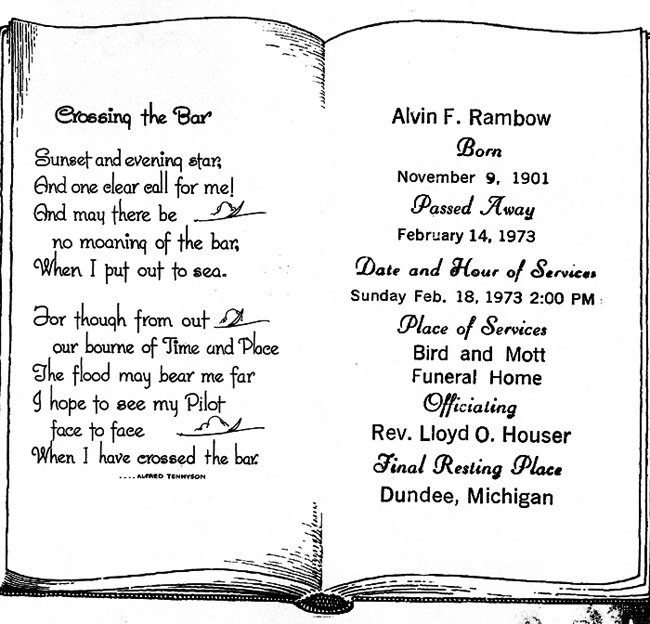 Crossing the Bar
Sunset and evening star,
And one clear call for me!
And may there be
no moaning of the bar,
When I put out to sea.
For though from out
our bourne of Time and Place
The flood may bear me far
I hope to see my Pilot
face to face
When I have crossed the bar.
....ALFRED TENNYSON
Alvin F. Rambow
Born
November 9, 1901
Passed Away
February 14, 1973
Date and Hour of Services
Sunday Feb. 18, 1973 2:00 PM
Place of Services
Bird and Mott
Funeral Home
Officiating
Rev. Lloyd O. Houser
Final Resting Place
Dundee, Michigan